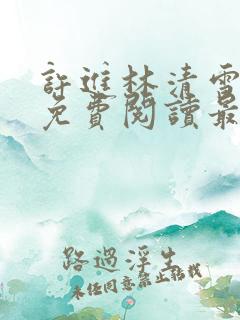 許進林清雪
免費閱讀最
路過浮生
未經同意禁止轉載